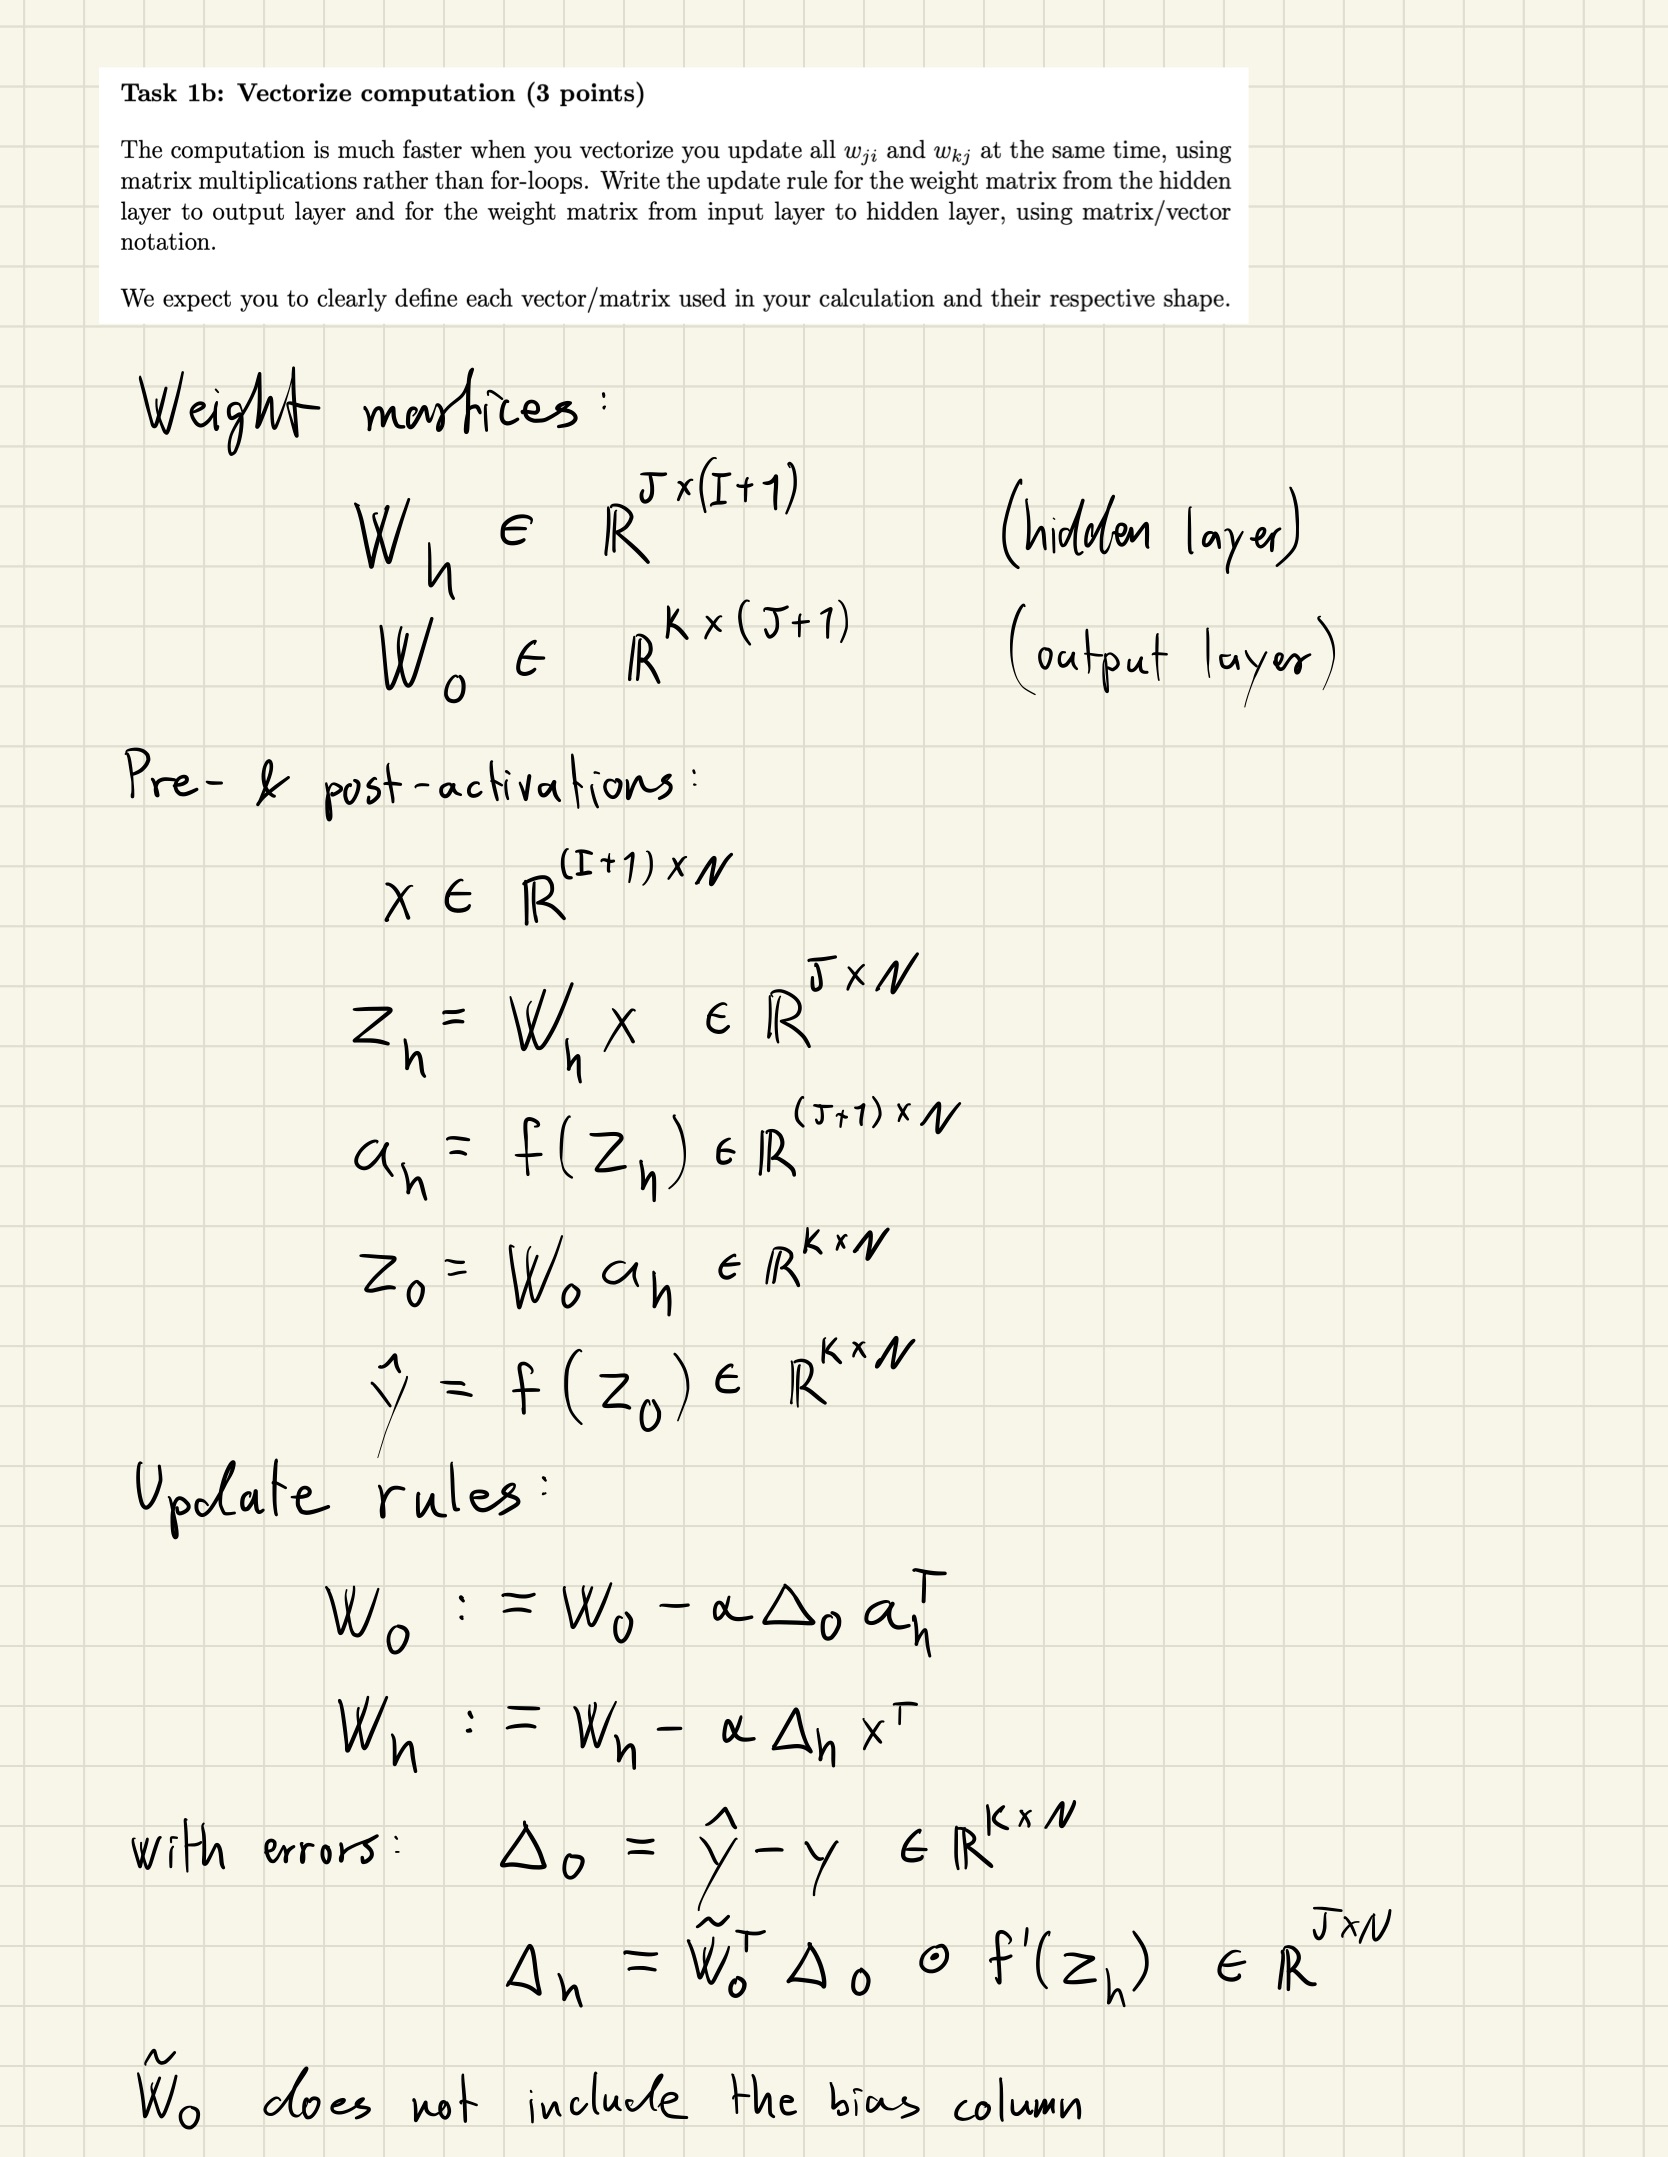 Task 1b: Vectorize computation (3 points)
The computation is much faster when you vectorize you update all w_{ji} and w_{kj} at the same time, using
matrix multiplications rather than for-loops. Write the update rule for the weight matrix from the hidden
layer to output layer and for the weight matrix from input layer to hidden layer, using matrix/vector
notation.
We expect you to clearly define each vector/matrix used in your calculation and their respective shape.
Weight martices:
W_h ∈ ℝ^{J×(I+1)} (hidden layer)
W_o ∈ ℝ^{K×(J+1)} (output layer)
Pre- & post-activations:
x ∈ ℝ^{(I+1)×N}
z_h = W_h x ∈ ℝ^{J×N}
a_h = f(z_h) ∈ ℝ^{(J+1)×N}
z_o = W_o a_h ∈ ℝ^{K×N}
ŷ = f(z_o) ∈ ℝ^{K×N}
Update rules:
W_o := W_o - α Δ_o a_h^T
W_h := W_h - α Δ_h x^T
with errors: Δ_o = ŷ - y ∈ ℝ^{K×N}
Δ_h = W̃_o^T Δ_o ⊙ f'(z_h) ∈ ℝ^{J×N}
W̃_o does not include the bias column